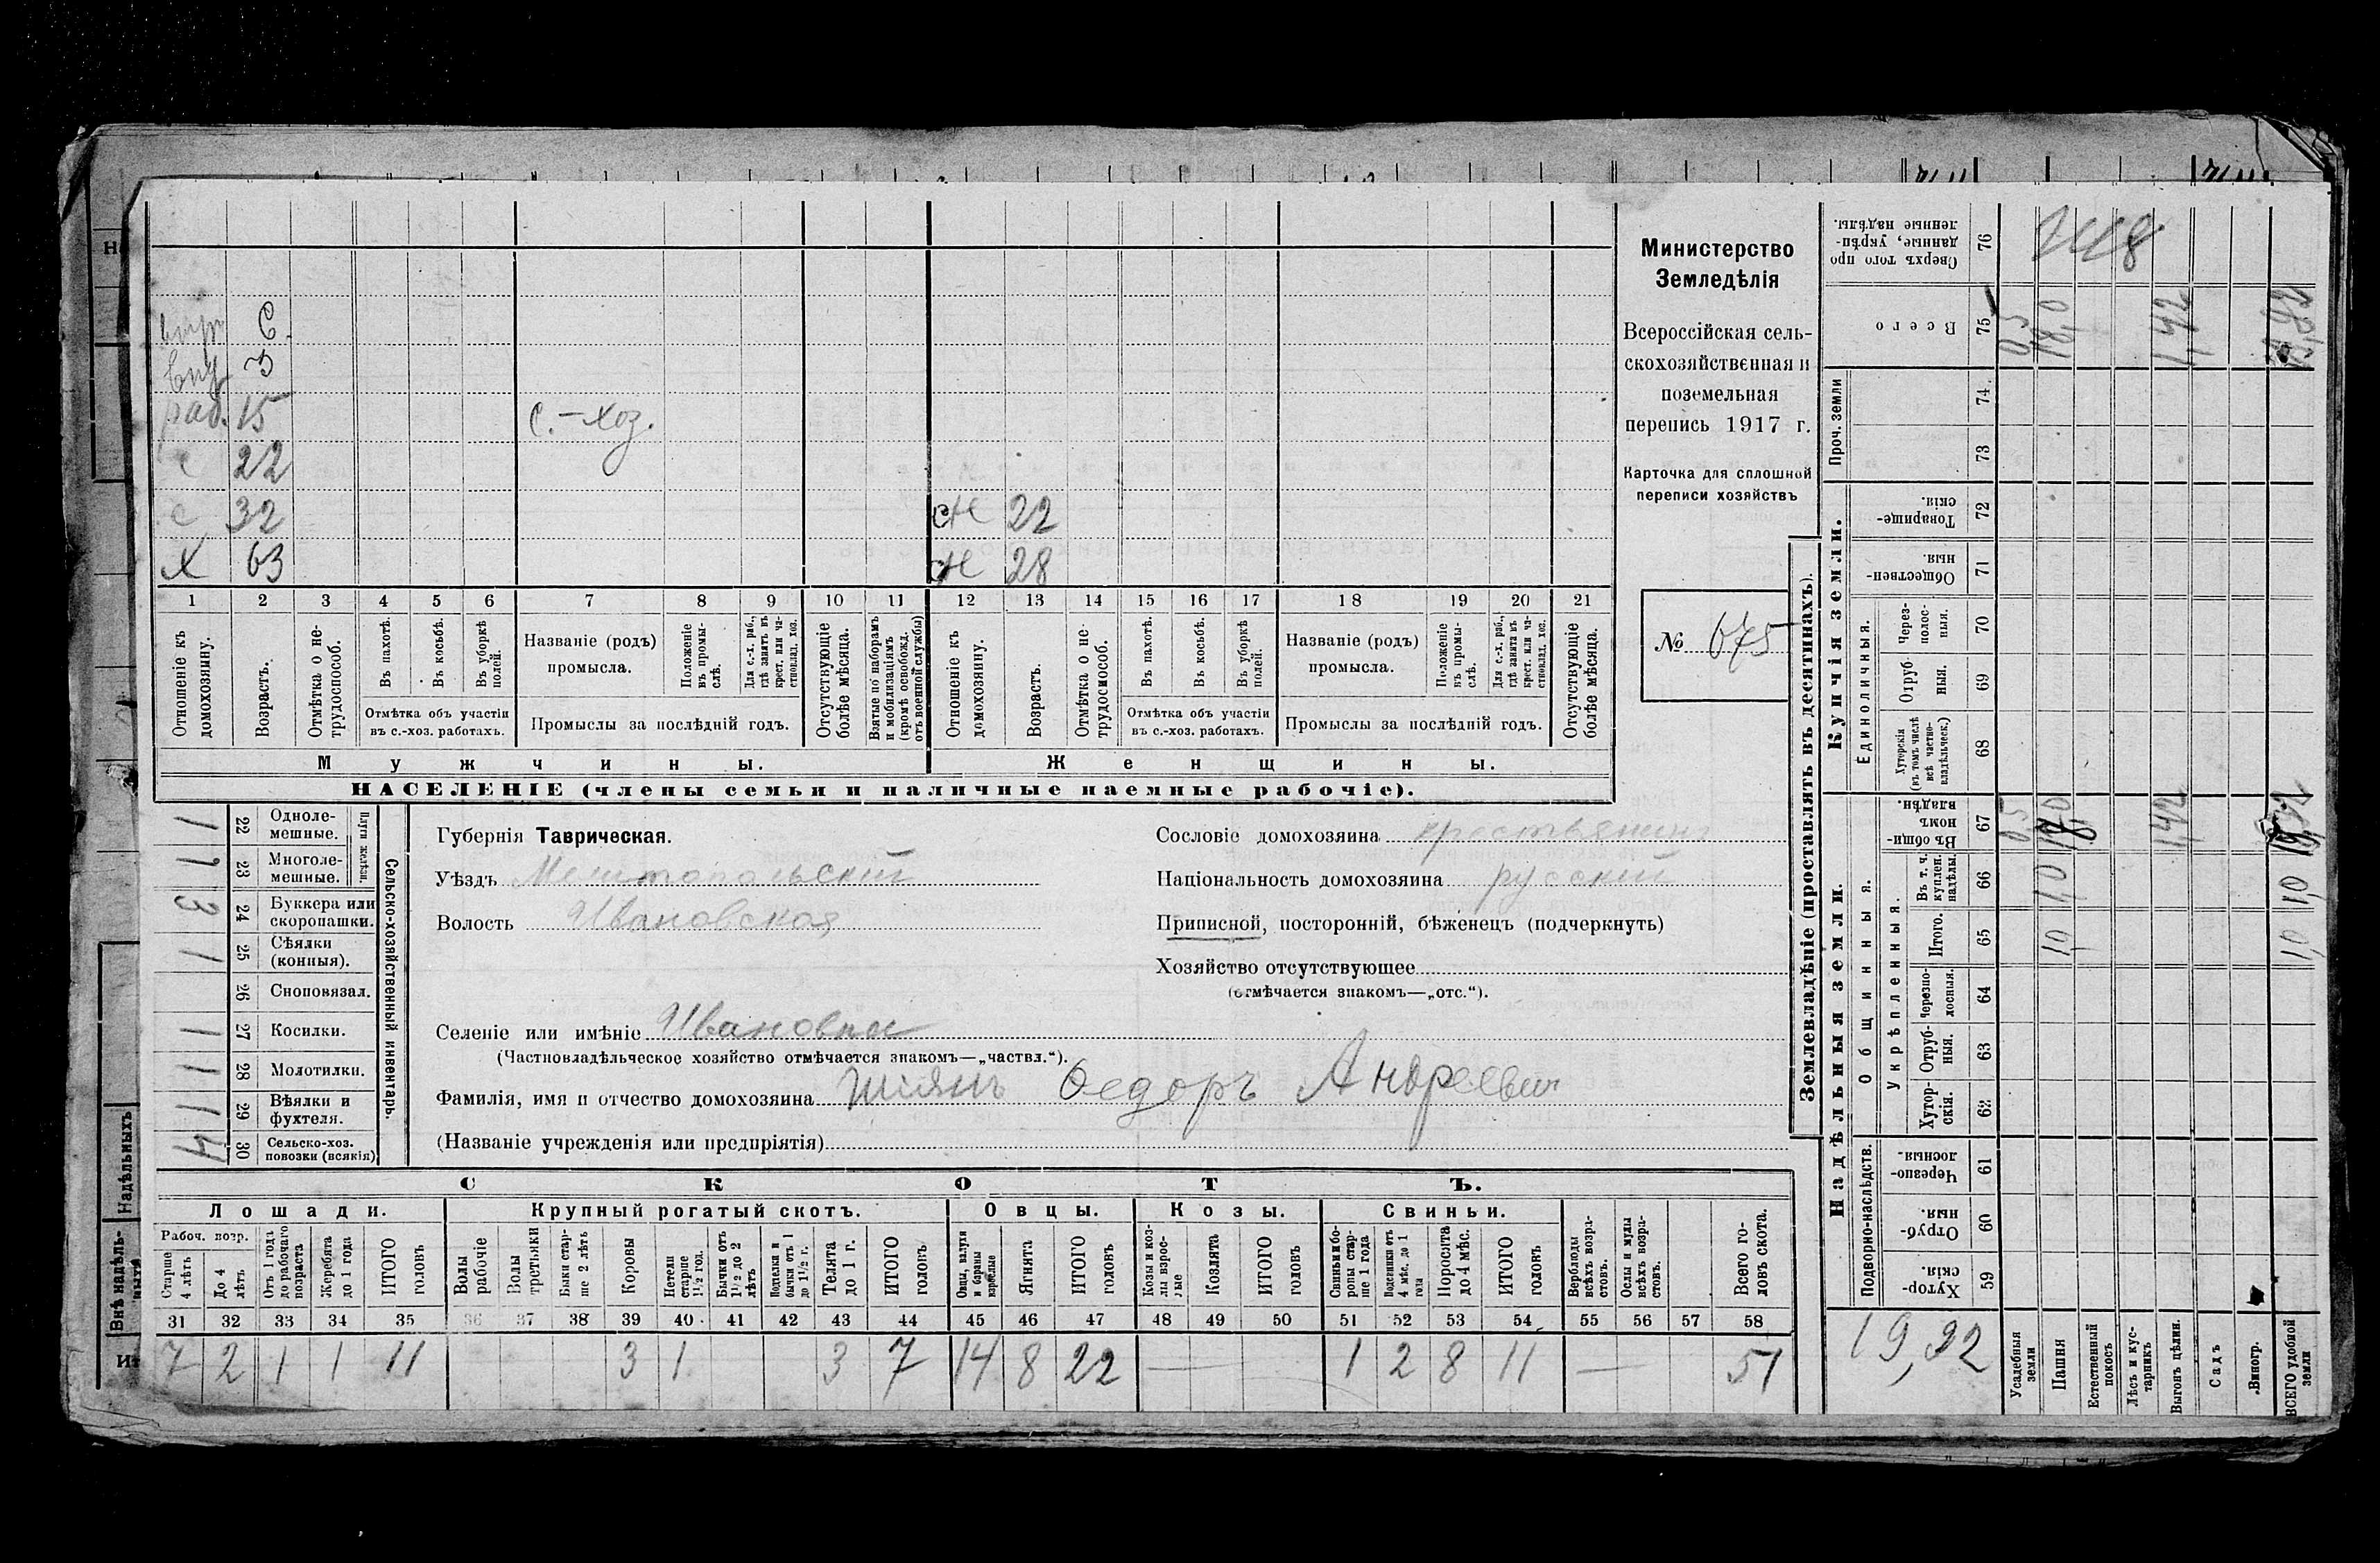 внуч. 6.
внук 3
раб. 15 с.-хоз.
с 22
с 32 сн 22
х 63 сн 28
1 2 3 4 5 6 7 8 9 10 11 12 13 14 15 16 17 18 19 20 21
Отношеніе къ домохозяину.
Возрастъ.
Отмѣтка о нетрудоспособ.
Въ пахотѣ.
Въ косьбѣ.
Въ уборкѣ полей.
Отмѣтка объ участіи въ с.-хоз. работахъ.
Названіе (родъ) промысла.
Положеніе въ промыслѣ.
Для с.-х. раб., гдѣ занятъ въ крест. или частновлад. хоз.
Промыслы за послѣдній годъ.
Отсутствующіе болѣе мѣсяца.
Взятые по наборамъ и мобилизаціямъ (кромѣ освобожд. отъ военной службы)
Отношеніе къ домохозяину.
Возрастъ.
Отмѣтка о нетрудоспособ.
Въ пахотѣ.
Въ косьбѣ.
Въ уборкѣ полей.
Отмѣтка объ участіи въ с.-хоз. работахъ.
Названіе (родъ) промысла.
Положеніе въ промыслѣ.
Для с.-х. раб., гдѣ занята въ крест. или частновлад. хоз.
Промыслы за послѣдній годъ.
Отсутствующіе болѣе мѣсяца.
Мужчины.
Женщины.
НАСЕЛЕНІЕ (члены семьи и наличные наемные рабочіе).
Министерство
Земледѣлія
Всероссійская сель-
скохозяйственная и
поземельная
перепись 1917 г.
Карточка для сплошной
переписи хозяйствъ
№ 675
Сельско-хозяйственный инвентарь.
Плуги желѣзн.
1 22 Одноле-мешные.
1 23 Многоле-мешные.
3 24 Буккера или скоропашки.
1 25 Сѣялки (конныя).
26 Сноповязал.
1 27 Косилки.
1 28 Молотилки.
1 29 Вѣялки и фухтеля.
4 30 Сельско-хоз. повозки (всякія)
Губернія Таврическая.
Уѣздъ Мелитопольскій
Волость Ивановская
Селеніе или имѣніе Ивановка
(Частновладѣльческое хозяйство отмѣчается знакомъ—„частвл.“).
Фамилія, имя и отчество домохозяина Шіянъ Федоръ Андреевич
(Названіе учрежденія или предпріятія)
Сословіе домохозяина крестьянинъ
Національность домохозяина русскій
Приписной, посторонній, бѣженецъ (подчеркнуть)
Хозяйство отсутствующее
(отмѣчается знакомъ—„отс.“).
СКОТЪ.
Лошади. Крупный рогатый скотъ. Овцы. Козы. Свиньи.
Рабоч. возр.
Старше 4 лѣтъ
До 4 лѣтъ
Отъ 1 года до рабочаго возраста
Жеребята до 1 года
ИТОГО головъ
Волы рабочіе
Волы третьяки
Быки старше 2 лѣтъ
Коровы
Нетели старше 1½ год.
Бычки отъ 1½ до 2 лѣтъ
Подтелки и бычки отъ 1 до 1½ г.
Телята до 1 г.
ИТОГО головъ
Овцы, валухи и бараны взрослые
Ягнята
ИТОГО головъ
Козы и козлы взрослые
Козлята
ИТОГО головъ
Свиньи и боровы старше 1 года
Подсвинки отъ 4 мѣс. до 1 года
Поросята до 4 мѣс.
ИТОГО головъ
Верблюды всѣхъ возрастовъ.
Ослы и мулы всѣхъ возрастовъ.
Всего головъ скота.
31 32 33 34 35 36 37 38 39 40 41 42 43 44 45 46 47 48 49 50 51 52 53 54 55 56 57 58
7 2 1 1 11 3 1 3 7 14 8 22 — 1 2 8 11 — 51
Землевладѣніе (проставлять въ десятинахъ).
Сверхъ того проданные, укрѣпленные надѣлы. 76
Всего 75 0,5 18,0 1,42
Проч. земли
74
73
Купчія земли.
Товарищескія. 72
Общественныя. 71
Единоличныя.
Черезполосныя. 70
Отрубныя. 69
Хуторскія (въ томъ числѣ всѣ частновладѣльческ.) 68
Надѣльныя земли.
Общинныя.
Въ общин. владѣн. 67 0,5 1,42
Укрѣпленныя.
Въ т. ч. куплен. надѣлы. 66 1,0 1,0
Итого. 65 1,0 1,0
Черезполосныя. 64
Отрубныя. 63
Хуторскія. 62
Подворно-наслѣдств.
Черезполосныя. 61
Отрубныя. 60
Хуторскія. 59
19,92
Усадебныя земли
Пашня
Естественный покосъ
Лѣсъ и кустарникъ
Выгонъ цѣлин.
Садъ
Виногр.
ВСЕГО удобной земли
Надѣльныхъ
Внѣ надѣль-